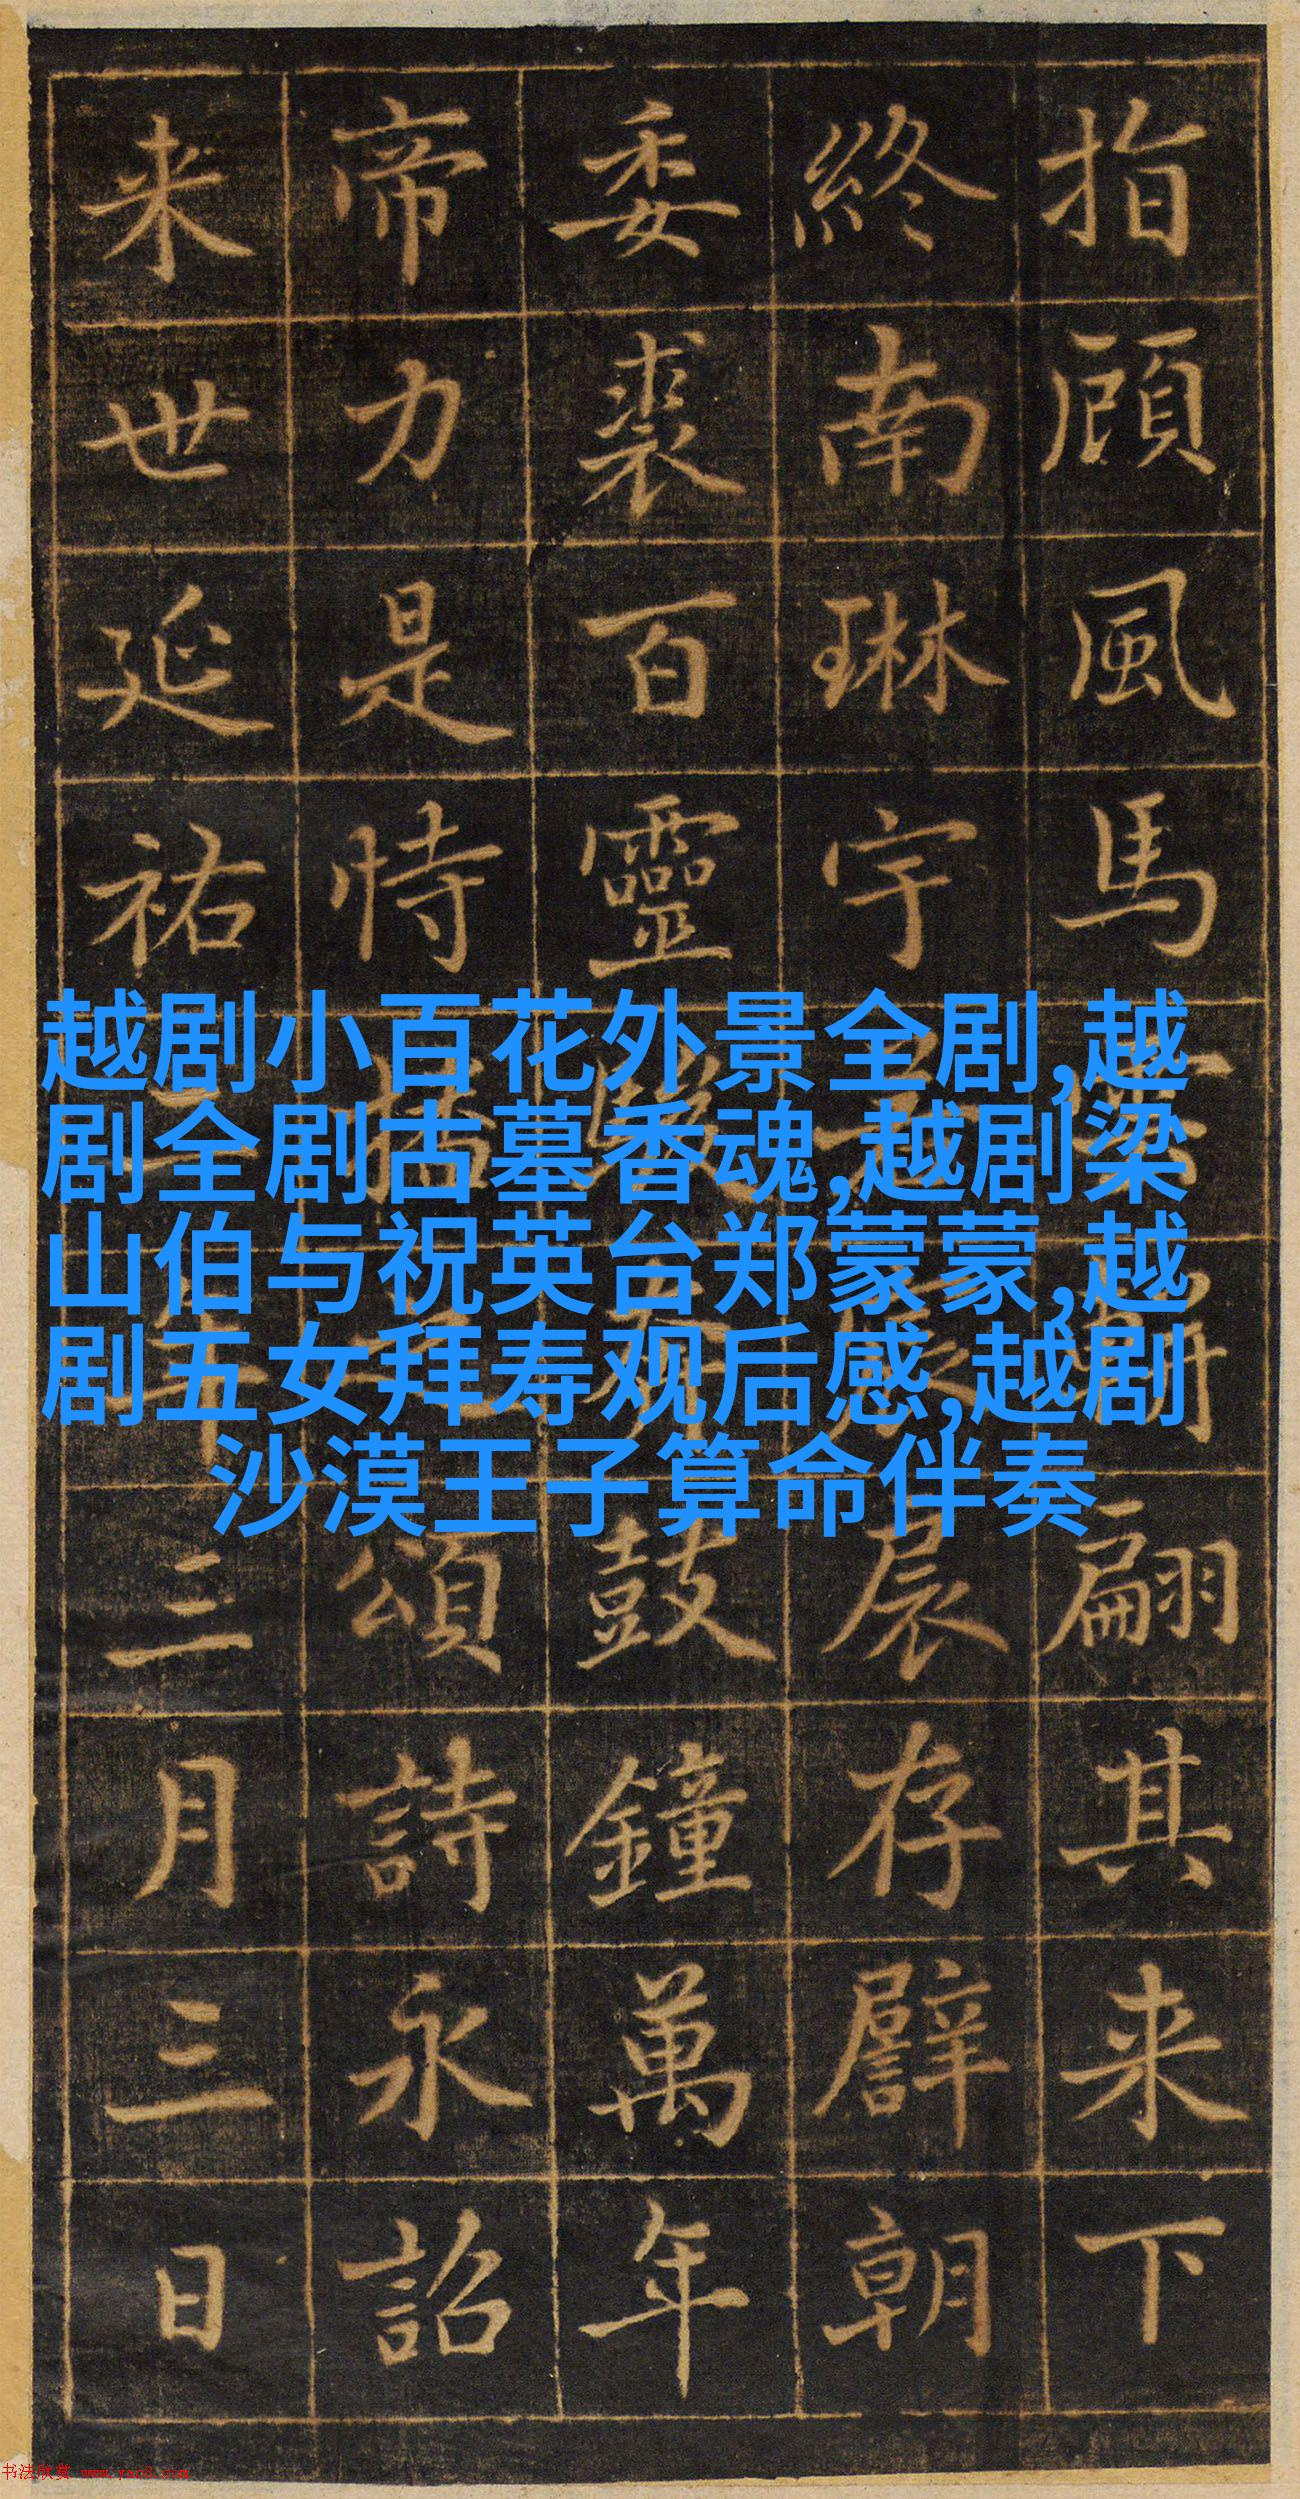 指顧風馬翩其来下
終南琳宇存譬朝
委裘百靈鼓鐘萬年
帝力是恃頌詩永詔
来世延祐年三月三日
越剧小百花外景全剧,越
剧全剧古墓香魂,越剧梁
山伯与祝英台郑蒙蒙,越
剧五女拜寿观后感,越剧
沙漠王子算命伴奏
书法欣赏 www.yac8.com